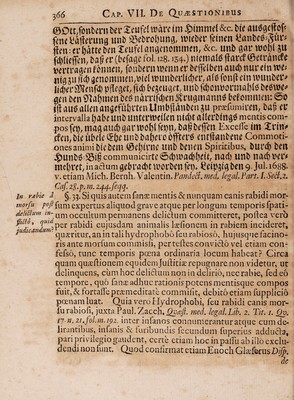 366 CAP. VII. DE QUÆSTIONIBUS
GOtt, sondern der Teufel wäre im Himmel &c. die ausgestos-
sene Lästerung und Bedrohung, wieder seinen Landes-Für-
sten er hätte den Teufel angenommen, &c. und gar wohl zu
schliessen, daß er (besage fol. 118. 134.) niemals starck Geträncke
vertragen können, sondern wenn er desselben auch nur ein we-
nig zu sich genommen, viel wunderlicher, als sonst ein wunder-
licher Mensch pfleget, sich bezeuget, und schon vormahls deswe-
gen den Nahmen des närrischen bekommen: So
ist aus allen angeführten Umbständen zu præsumiren, daß er
intervalla habe und unterweilen nicht allerdings mentis com-
pos sey, mag auch gar wohl seyn, daß dessen Excesse im Trin-
cken, die üble Ehe und dahero öffters entstandene Commotio-
nes animi die dem Gehirne und denen Spiritibus, durch den
Hunds-Biß communicirte Schwachheit, nach und nach ver-
mehret, in actum gebracht worden sey. Leipzig den 9. Jul. 1688.
v. etiam Mich. Bernh. Valentin. Pandect. med. legal. Part. I. Sect. 2.
Cas. 25. p. m. 244. seqq.
In rabie à
morsu post
delictum in-
flictô, quid
judicandum?
§. 33. Si quis autem sanæ mentis & nunquam canis rabidi mor-
sum expertus aliquod grave atque per longum temporis spati-
um occultum permanens delictum committeret, postea verò
per rabidi cujusdam animalis læsionem in rabiem incideret,
quæritur, an in tali hydrophobo seu rabioso, hujusque facino-
ris ante morsum commissi, per testes convicto vel etiam con-
fesso, tunc temporis pœna ordinaria locum habeat? Circa
quam quæstionem ejusdem Justitiæ repugnare non videtur, ut
delinquens, cum hoc delictum non in delirio, nec rabie, sed eô
tempore, quô sanæ adhuc rationis potens mentisque compos
fuit, & fortasse præmeditatè commisit, debitô etiam suppliciô
pœnam luat. Quia verò Hydrophobi, seu rabidi canis mor-
su rabiosi, juxta Paul. Zacch. Quæst. med. legal. Lib. 2. Tit. 1. Qu.
17. n. 21. fol. m. 192. inter insanos connumerantur atque cum de-
lirantibus, insanis & furibundis secundum superius adducta,
pari privilegio gaudent, certè etiam hoc in passu ab illo exclu-
dendi non sunt. Quod confirmat etiam Enoch Glæser Disp.
de